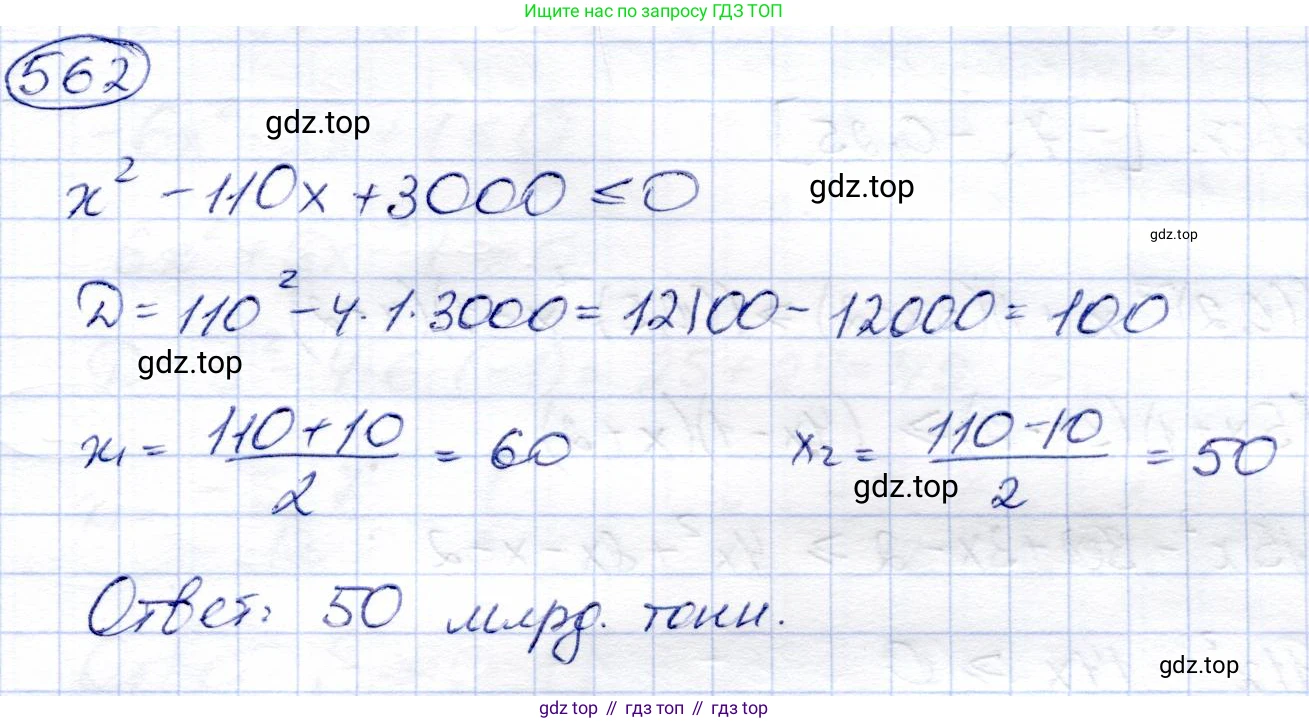 Ищите нас по запросу ГДЗ ТОП
562
gdz.top
x² - 110x + 3000 ≤ 0
gdz.top
gdz.top
D = 110² - 4·1·3000 = 12100 - 12000 = 100
gdz.top
x₁ = (110+10)/2 = 60 x₂ = (110-10)/2 = 50
gdz.top
Ответ: 50 млрд. тонн.
gdz.top
gdz top // гдз топ // гдз top